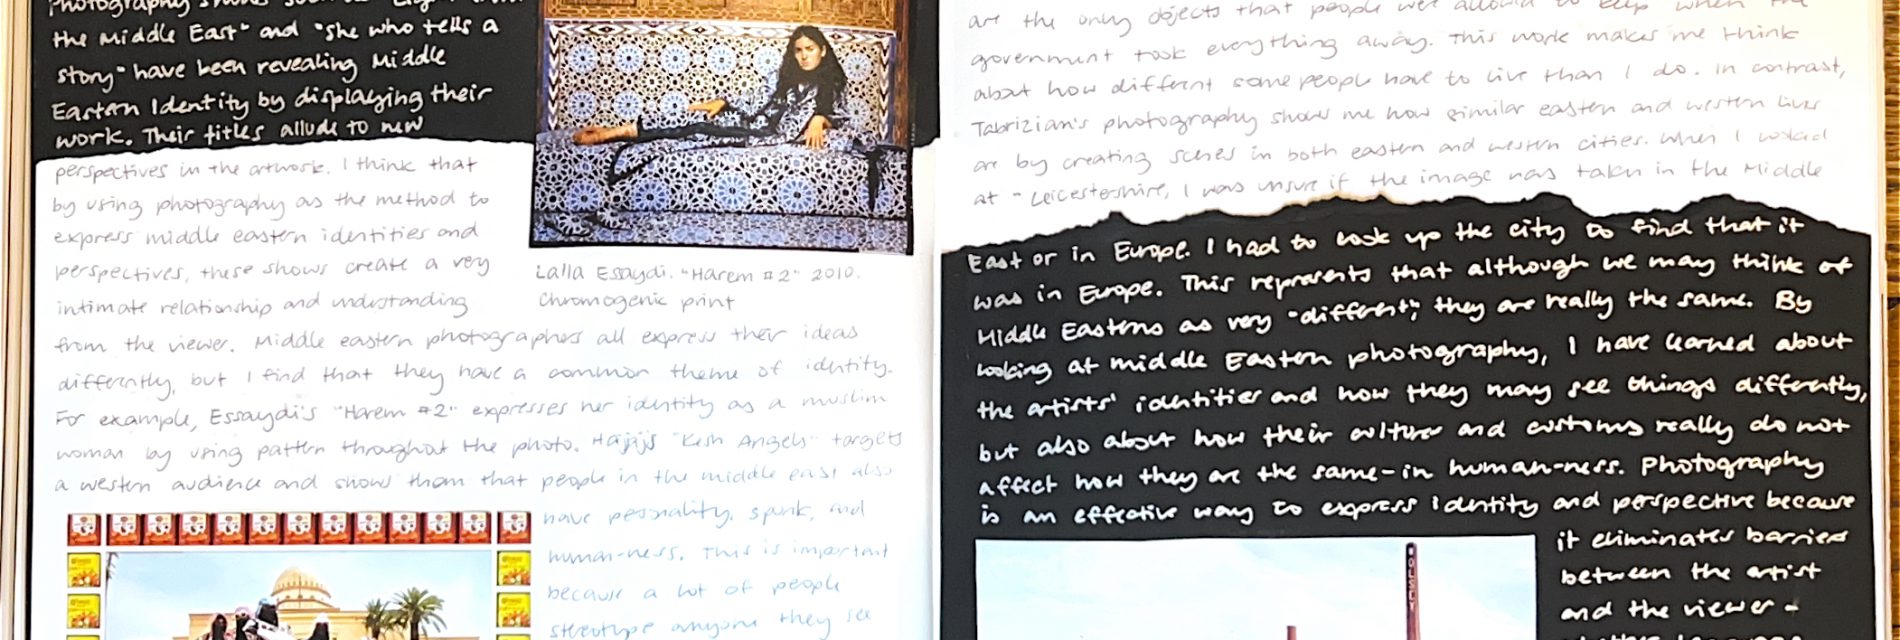 Photography shows such as "Light from
the Middle East" and "She who tells a
story" have been revealing Middle
Eastern Identity by displaying their
work. Their titles allude to new
perspectives in the artwork. I think that
by using photography as the method to
express middle eastern identities and
perspectives, these shows create a very
intimate relationship and understanding
from the viewer. Middle eastern photographers all express their ideas
differently, but I find that they have a common theme of identity.
For example, Essaydi's "Harem #2" expresses her identity as a muslim
woman by using pattern throughout the photo. Hajjaj's "Kesh Angels" targets
a western audience and show them that people in the middle east also
have personality, spunk, and
human-ness. This is important
because a lot of people
stereotype anyone they see
Lalla Essaydi. "Harem #2" 2010.
Chromogenic print
are the only objects that people were allowed to keep when the
government took everything away. This work makes me think
about how different some people have to live than I do. In contrast,
Tabrizian's photography shows me how similar eastern and western lives
are by creating scenes in both eastern and western cities. When I looked
at "Leicestershire, I was unsure if the image was taken in the Middle
East or in Europe. I had to look up the city to find that it
was in Europe. This represents that although we may think of
Middle Easterns as very "different", they are really the same. By
looking at middle Eastern photography, I have learned about
the artists' identities and how they may see things differently,
but also about how their cultures and customs really do not
affect how they are the same-in human-ness. Photography
is an effective way to express identity and perspective because
it eliminates barriers
between the artist
and the viewer -
WOLSELEY